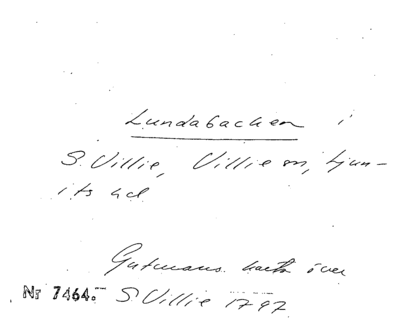 Lundabacken i
S. Villie, Villie sn, Ljun-
its hd
Gutmans karta över
Nr 7464. S. Villie 1797